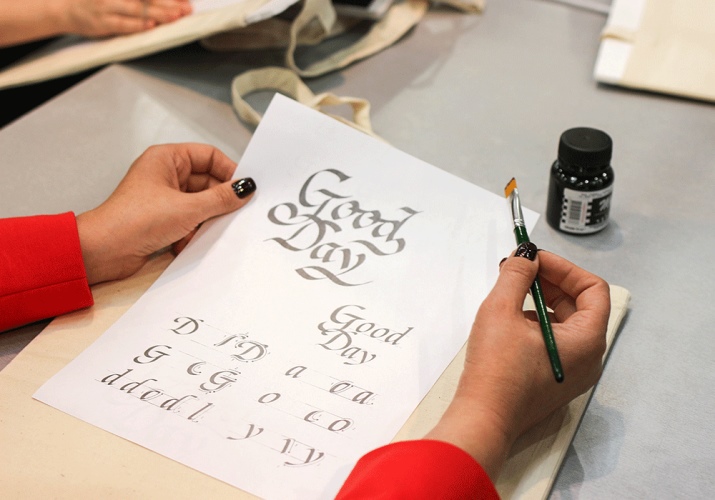 Good
Day
Good
Day
D D
G c G
d
a a
o c o
y y